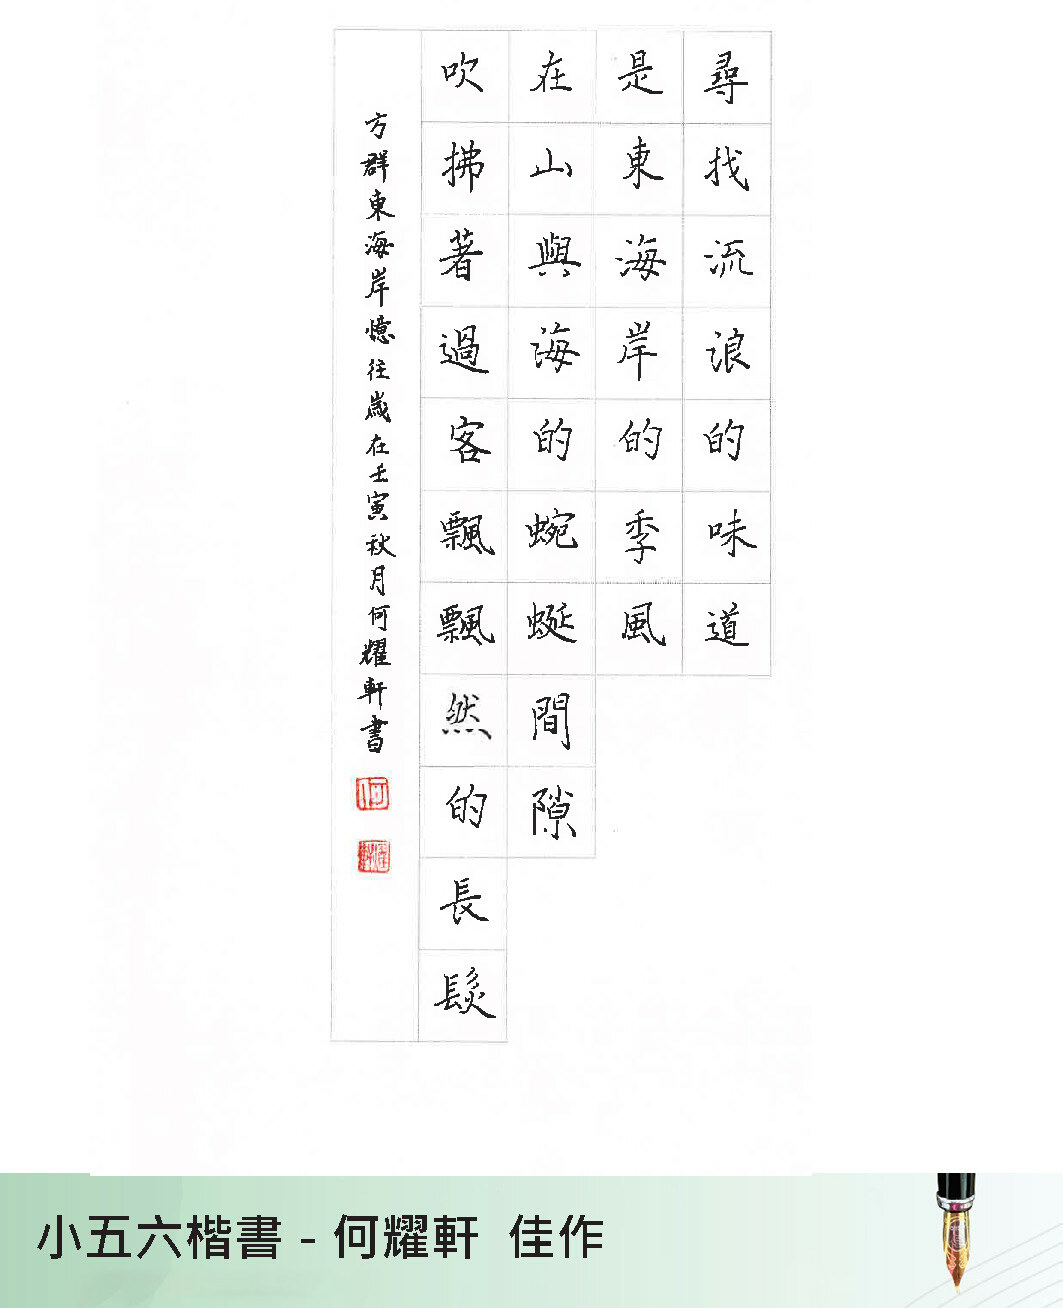 尋找流浪的味道
是東海岸的季風
在山與海的蜿蜒間隙
吹拂著過客飄飄然的長髮
方群東海岸憶往歲在壬寅秋月何耀軒書
何
耀軒
小五六楷書 - 何耀軒 佳作